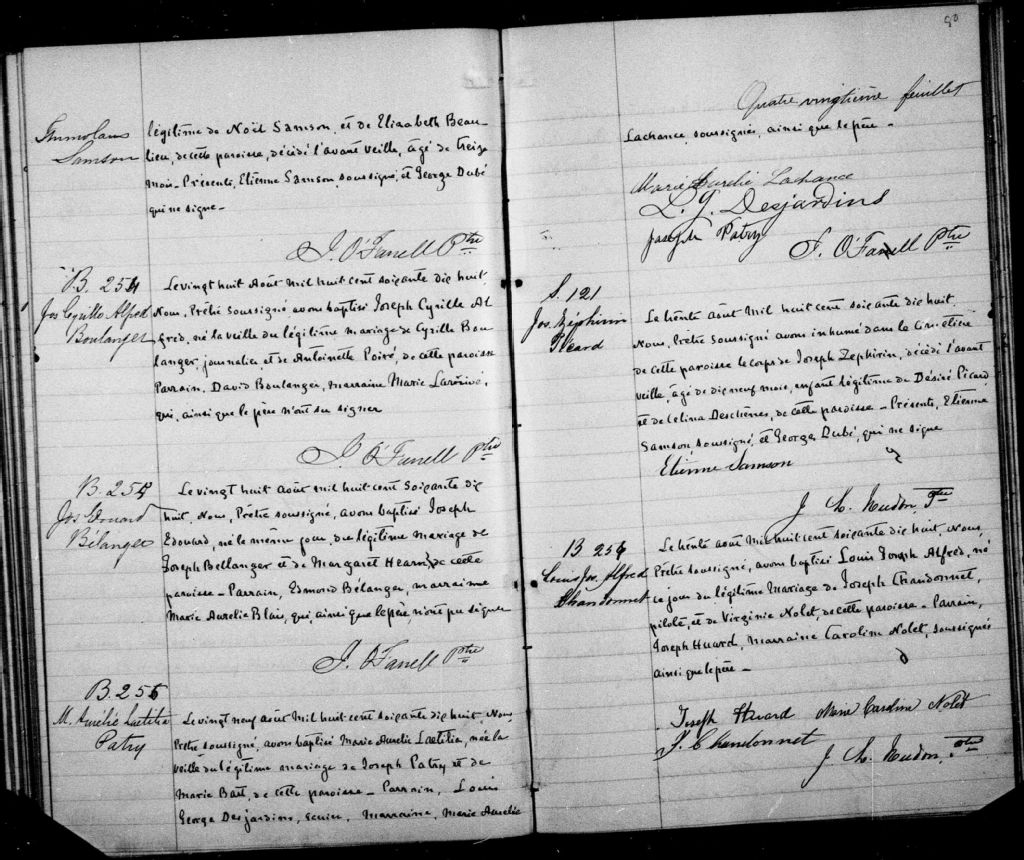 Samson
légitime de Noël Samson, et de Elizabeth Beau-
lieu, de cette paroisse, décédé l'avant veille, âgé de treize
mois - Présents, Etienne Samson, soussigné, et George Dubé
qui ne signe -
J. O'Farrell Ptre
B. 254
Jos Cyrille Alfred
Boulanger
Le vingt huit Août mil huit cent soixante dix huit
Nous, Prêtre soussigné avons baptisé Joseph Cyrille Al
fred, né la veille du légitime mariage de Cyrille Bou
langer, journalier, et de Antoinette Poiré, de cette paroisse
Parrain, David Boulanger, marraine Marie Larrivé,
qui, ainsi que le père n'ont su signer
J. O'Farrell Ptre
B. 254
Jos Edouard
Bélanger
Le vingt huit août mil huit cent soixante dix
huit, Nous, Prêtre soussigné, avons baptisé Joseph
Edouard, né le même jour, du légitime mariage de
Joseph Bellanger et de Margaret Hearn, de cette
paroisse - Parrain, Edmond Bélanger, marraine
Marie Aurelie Blais, qui ainsi que le père, n'ont pu signer
J. O'Farrell Ptre
B. 255
M. Aurélie Laetitia
Patry
Le vingt neuf août mil huit cent soixante dix huit, Nous
Prêtre soussigné, avons baptisé Marie Aurelie Laetitia, née la
veille du légitime mariage de Joseph Patry et de
Marie Batt, de cette paroisse - Parrain, Louis
George Desjardins, écuier, Marraine, Marie Aurelie
80
Quatre vingtième feuillet
Lachance, soussignés, ainsi que le père -
Marie Aurelie Lachance
L. G. Desjardins
Joseph Patry
J. O'Farrell Ptre
S. 121
Jos. Zéphirin
Picard
Le trente août mil huit cent soixante dix huit
Nous, Prêtre soussigné avons inhumé dans le cimetière
de cette paroisse le corps de Joseph Zephirin, décédé l'avant
veille, âgé de dix neuf mois, enfant légitime de Désiré Picard
et de Celina Deschènes, de cette paroisse - Présents, Etienne
Samson soussigné, et George Dubé, qui ne signe
Etienne Samson
Ptre
B 256
Louis Jos. Alfred
Chandonnet
Le trente août Mil huit cent soixante dix huit, Nous
Prêtre soussigné, avons baptisé Louis Joseph Alfred, né
ce jour du légitime Mariage de Joseph Chandonnet,
pilote, et de Virginie Nolet, de cette paroisse - Parrain,
Joseph Huard, Marraine Caroline Nolet, soussignés
ainsi que le père -
Joseph Huard Marie Caroline Nolet
J. Chandonnet
Ptre